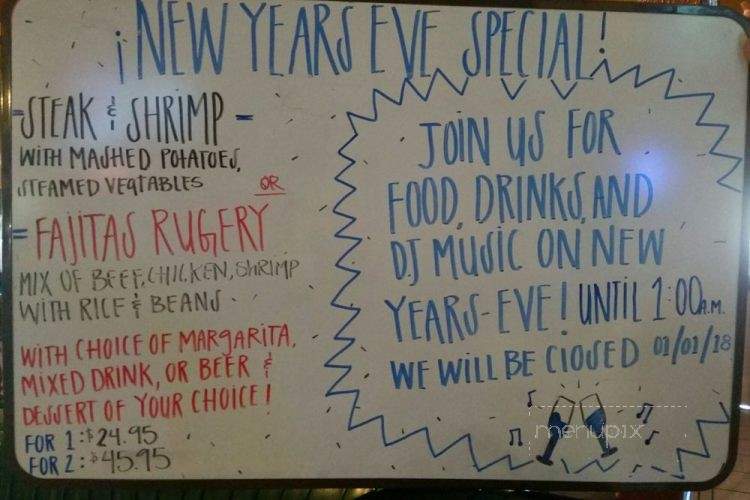 ¡NEW YEARS EVE SPECIAL!
-STEAK & SHRIMP-
WITH MASHED POTATOES,
STEAMED VEGTABLES
OR
=FAJITAS RUGERY
MIX OF BEEF, CHICKEN, SHRIMP
WITH RICE & BEANS
WITH CHOICE OF MARGARITA,
MIXED DRINK, OR BEER &
DESSERT OF YOUR CHOICE!
FOR 1:$24.95
FOR 2:$45.95
JOIN US FOR
FOOD, DRINKS, AND
DJ MUSIC ON NEW
YEARS-EVE! UNTIL 1:00A.M.
WE WILL BE CLOSED 01/01/18
menupix